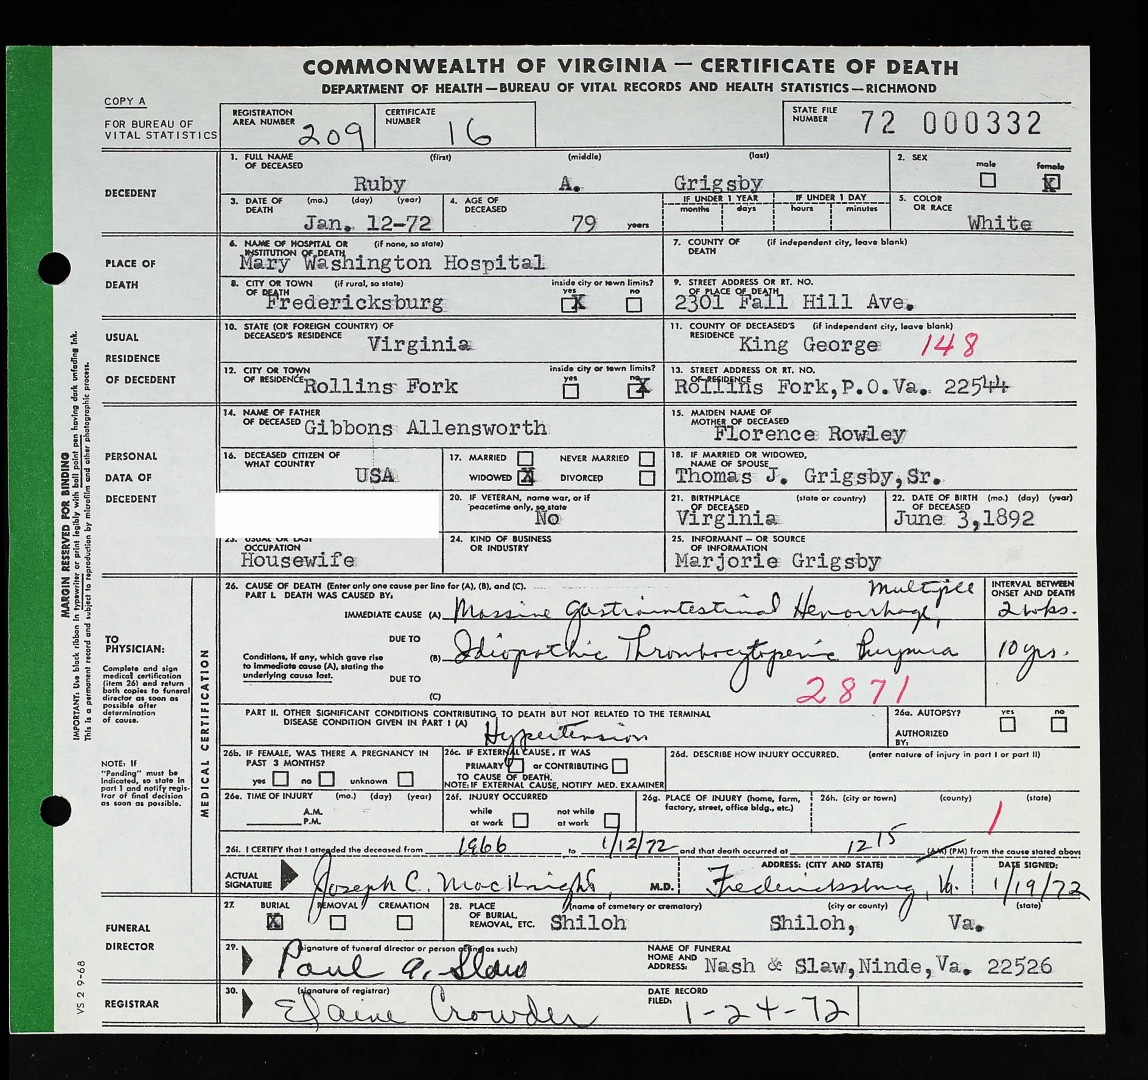 COMMONWEALTH OF VIRGINIA — CERTIFICATE OF DEATH
DEPARTMENT OF HEALTH—BUREAU OF VITAL RECORDS AND HEALTH STATISTICS—RICHMOND
COPY A
FOR BUREAU OF VITAL STATISTICS
REGISTRATION AREA NUMBER 209
CERTIFICATE NUMBER 16
STATE FILE NUMBER 72 000332
DECEDENT
1. FULL NAME OF DECEASED (first) (middle) (last)
Ruby A. Grigsby
2. SEX male female X
3. DATE OF DEATH (mo.) (day) (year) Jan. 12-72
4. AGE OF DECEASED 79 years
IF UNDER 1 YEAR months days
IF UNDER 1 DAY hours minutes
5. COLOR OR RACE White
PLACE OF DEATH
6. NAME OF HOSPITAL OR INSTITUTION OF DEATH (if none, so state)
Mary Washington Hospital
7. COUNTY OF DEATH (if independent city, leave blank)
8. CITY OR TOWN OF DEATH (if rural, so state) inside city or town limits? yes X no
Fredericksburg
9. STREET ADDRESS OR RT. NO. OF PLACE OF DEATH
2301 Fall Hill Ave.
USUAL RESIDENCE OF DECEDENT
10. STATE (OR FOREIGN COUNTRY) OF DECEASED'S RESIDENCE
Virginia
11. COUNTY OF DECEASED'S RESIDENCE (if independent city, leave blank)
King George 148
12. CITY OR TOWN OF RESIDENCE inside city or town limits? yes no X
Rollins Fork
13. STREET ADDRESS OR RT. NO. OF RESIDENCE
Rollins Fork, P.O. Va. 22544
PERSONAL DATA OF DECEDENT
14. NAME OF FATHER OF DECEASED Gibbons Allensworth
15. MAIDEN NAME OF MOTHER OF DECEASED
Florence Rowley
16. DECEASED CITIZEN OF WHAT COUNTRY
USA
17. MARRIED NEVER MARRIED
WIDOWED X DIVORCED
18. IF MARRIED OR WIDOWED, NAME OF SPOUSE
Thomas J. Grigsby, Sr.
20. IF VETERAN, name war, or if peacetime only, so state
No
21. BIRTHPLACE OF DECEASED (state or country)
Virginia
22. DATE OF BIRTH OF DECEASED (mo.) (day) (year)
June 3, 1892
23. USUAL OR LAST OCCUPATION
Housewife
24. KIND OF BUSINESS OR INDUSTRY
25. INFORMANT – OR SOURCE OF INFORMATION
Marjorie Grigsby
MARGIN RESERVED FOR BINDING
IMPORTANT: Use black ribbon in typewriter or print legibly with ball point pen having dark unfading ink.
This is a permanent record and subject to reproduction by microfilm and other photographic process.
TO PHYSICIAN:
Complete and sign medical certification (item 26) and return both copies to funeral director as soon as possible after determination of cause.
NOTE: If "Pending" must be indicated, so state in part 1 and notify registrar of final decision as soon as possible.
MEDICAL CERTIFICATION
26. CAUSE OF DEATH (Enter only one cause per line for (A), (B), and (C).
PART I. DEATH WAS CAUSED BY:
INTERVAL BETWEEN ONSET AND DEATH
IMMEDIATE CAUSE (A) Massive Gastrointestinal Hemorrhage, Multiple 2 wks.
DUE TO
Conditions, if any, which gave rise to immediate cause (A), stating the underlying cause last.
(B) Idiopathic Thrombocytopenic Purpura 10 yrs.
DUE TO
(C) 2871
PART II. OTHER SIGNIFICANT CONDITIONS CONTRIBUTING TO DEATH BUT NOT RELATED TO THE TERMINAL DISEASE CONDITION GIVEN IN PART I (A)
Hypertension
26a. AUTOPSY? yes no
AUTHORIZED BY:
26b. IF FEMALE, WAS THERE A PREGNANCY IN PAST 3 MONTHS?
yes no unknown
26c. IF EXTERNAL CAUSE, IT WAS
PRIMARY or CONTRIBUTING
TO CAUSE OF DEATH.
NOTE: IF EXTERNAL CAUSE, NOTIFY MED. EXAMINER
26d. DESCRIBE HOW INJURY OCCURRED. (enter nature of injury in part I or part II)
26e. TIME OF INJURY (mo.) (day) (year)
A.M.
P.M.
26f. INJURY OCCURRED
while at work not while at work
26g. PLACE OF INJURY (home, farm, factory, street, office bldg., etc.)
26h. (city or town) (county) (state)
1
26i. I CERTIFY that I attended the deceased from 1966 to 1/12/72 and that death occurred at 12 15 (AM) (PM) from the cause stated above
ACTUAL SIGNATURE Joseph C. MacKnight, M.D.
ADDRESS: (CITY AND STATE) Fredericksburg, Va.
DATE SIGNED: 1/19/72
FUNERAL DIRECTOR
27. BURIAL X REMOVAL CREMATION
28. PLACE OF BURIAL, REMOVAL, ETC. (name of cemetery or crematory) (city or county) (state)
Shiloh Shiloh, Va.
29. (signature of funeral director or person acting as such)
Paul A. Slaw
NAME OF FUNERAL HOME AND ADDRESS: Nash & Slaw, Ninde, Va. 22526
REGISTRAR
30. (signature of registrar)
Elaine Crowder
DATE RECORD FILED: 1-24-72
VS 2 9-68